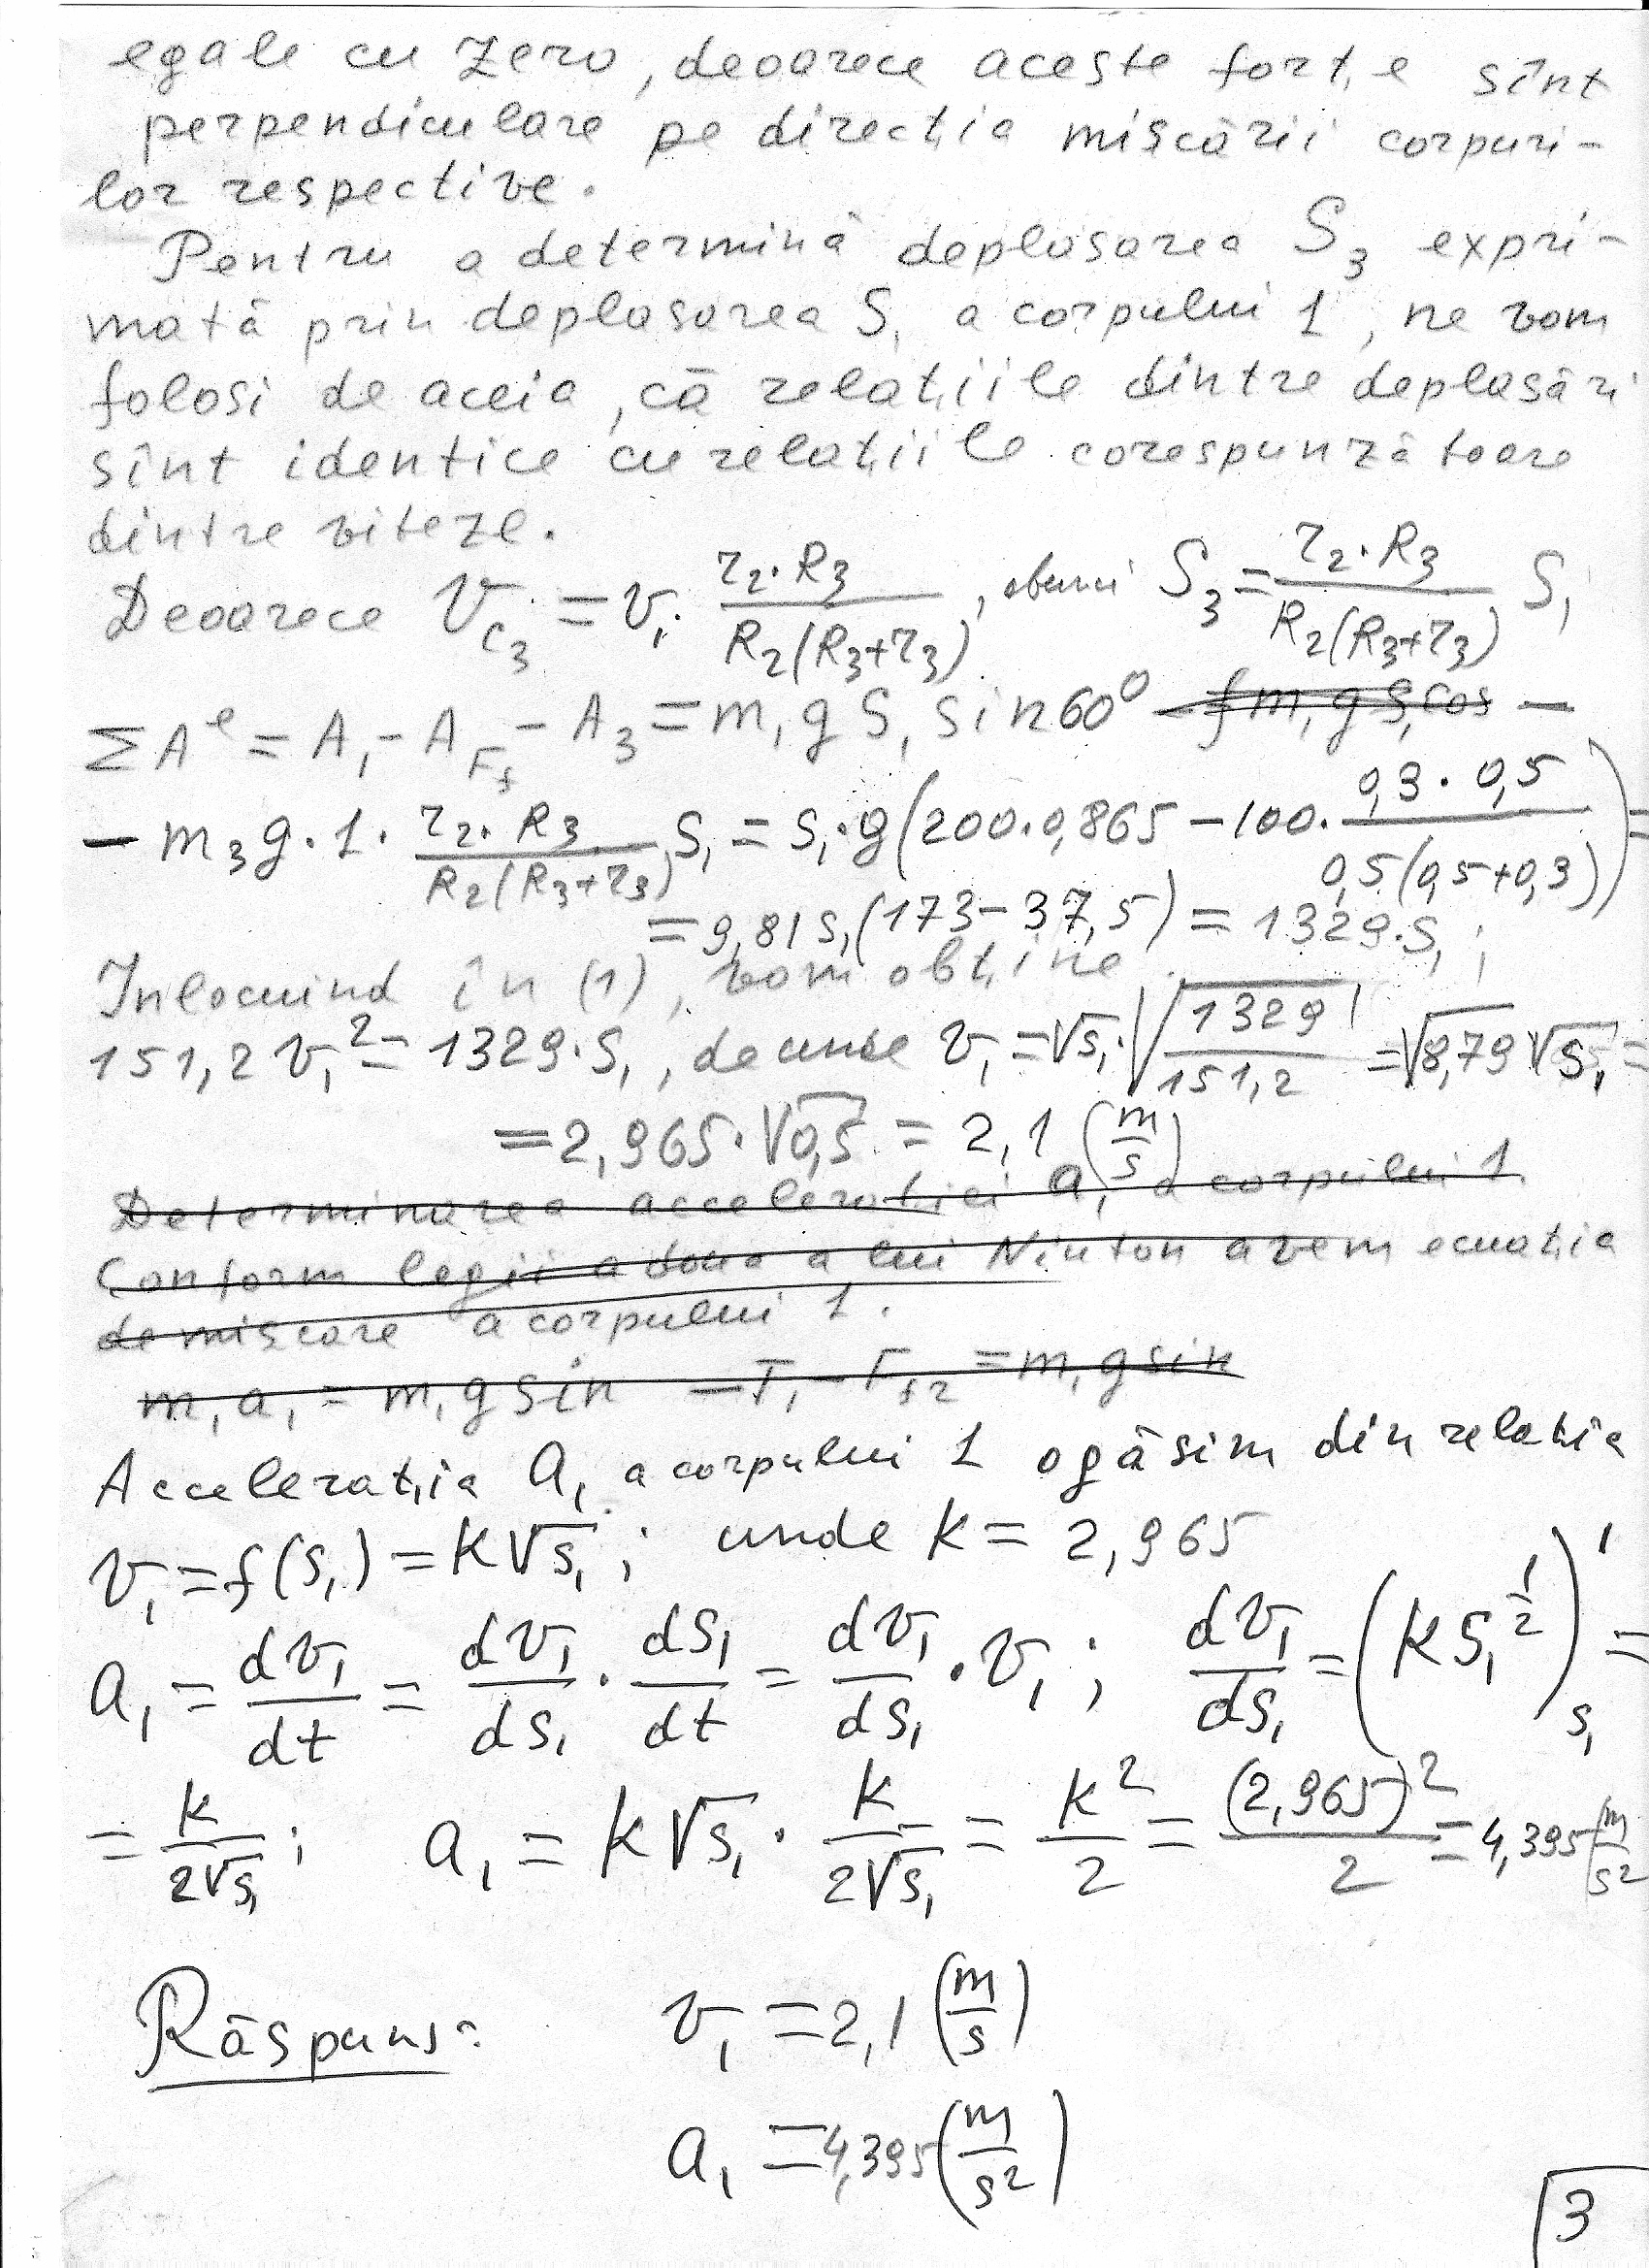 egale cu zero, deoarece aceste forțe sînt
perpendiculare pe direcția mișcării corpuri-
lor respective.
Pentru a determină deplasarea S₃ expri-
mată prin deplasarea S₁ a corpului 1, ne vom
folosi de aceia, că relațiile dintre deplasări
sînt identice cu relațiile corespunzătoare
dintre viteze.
Deoarece V_C₃ = v₁ · (r₂·R₃)/(R₂(R₃+r₃)), S₃ = (r₂·R₃)/(R₂(R₃+r₃)) S₁
ΣAᵉ = A₁ - A_Ff - A₃ = m₁gS₁ sin60° - f m₁gS₁cos -
- m₃g·1·(r₂·R₃)/(R₂(R₃+r₃)) S₁ = S₁·g(200·0,865 - 100·(0,3·0,5)/(0,5(0,5+0,3))) =
= 9,81S₁(173-37,5) = 1329·S₁;
Inlocuind în (1), vom obține
151,2 v₁² = 1329·S₁, de unde v₁ = √S₁·√(1329/151,2) = √8,79 √S₁ =
= 2,965·√0,5 = 2,1 (m/s)
Determinarea accelerației a₁ a corpului 1
Conform legii a doua a lui Niuton avem ecuația
de mișcare a corpului 1.
m₁a₁ = m₁g sin - T₁ - F_f2 = m₁g sin
Accelerația a₁ a corpului 1 o găsim din relația
v₁ = f(S₁) = k√S₁; unde k = 2,965
a₁ = dv₁/dt = dv₁/dS₁ · dS₁/dt = dv₁/dS₁ · v₁; dv₁/dS₁ = (kS₁^(1/2))'_S₁ =
= k/(2√S₁); a₁ = k√S₁ · k/(2√S₁) = k²/2 = (2,965)²/2 = 4,395 m/s²
Răspuns: v₁ = 2,1 (m/s)
a₁ = 4,395 (m/s²)
3